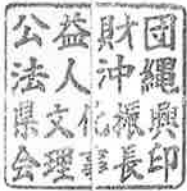 公益財団
法人沖繩
県文化振興
会理事長印